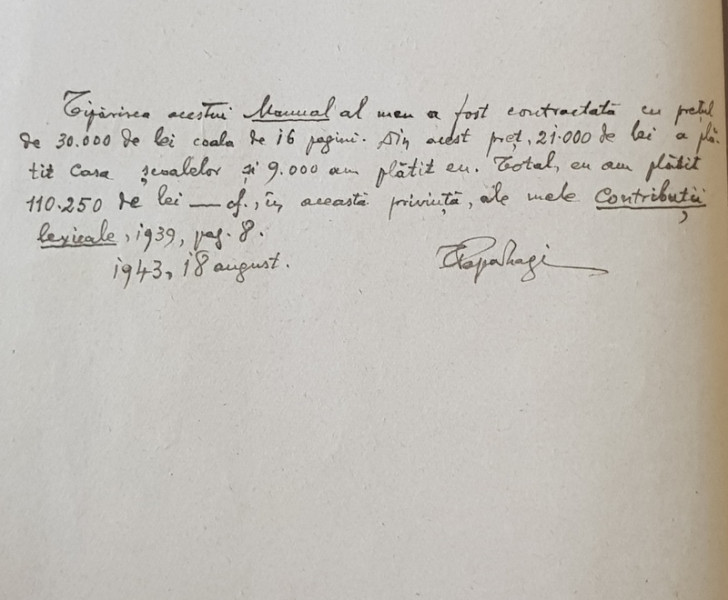 Tipărirea acestui Manual al meu a fost contractată cu prețul
de 30.000 de lei coala de 16 pagini. Din acest preț, 21.000 de lei a plă-
tit Casa școalelor și 9.000 am plătit eu. Total, eu am plătit
110.250 de lei — cf., în această privință, ale mele Contribuții
lexicale, 1939, pag. 8.
1943, 18 august. TPapahagi